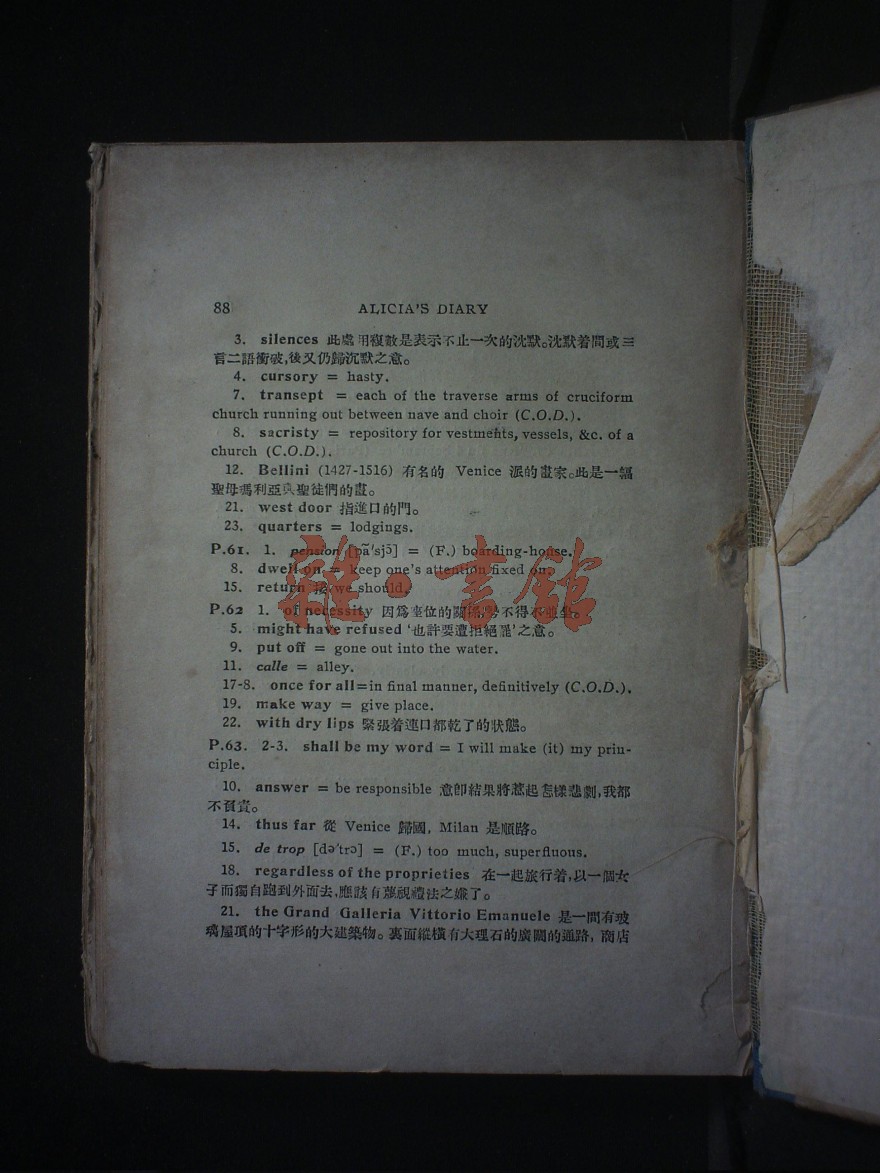 88 ALICIA'S DIARY
3. silences 此處用複數是表示不止一次的沈默。沈默着間或三
言二語衝破,後又仍歸沉默之意。
4. cursory = hasty.
7. transept = each of the traverse arms of cruciform
church running out between nave and choir (C.O.D.).
8. sacristy = repository for vestments, vessels, &c. of a
church (C.O.D.).
12. Bellini (1427-1516) 有名的 Venice 派的畫家。此是一幅
聖母瑪利亞與聖徒們的畫。
21. west door 指進口的門。
23. quarters = lodgings.
P.61. 1. pension [pã'sjɔ̃] = (F.) boarding-house.
8. dwell on = keep one's attention fixed on.
15. return 接 we should.
P.62 1. of necessity 因爲座位的關係,勢不得不並坐。
5. might have refused '也許要遭拒絕罷'之意。
9. put off = gone out into the water.
11. calle = alley.
17-8. once for all=in final manner, definitively (C.O.D.).
19. make way = give place.
22. with dry lips 緊張着連口都乾了的狀態。
P.63. 2-3. shall be my word = I will make (it) my prin-
ciple.
10. answer = be responsible 意卽結果將惹起怎樣悲劇,我都
不負責。
14. thus far 從 Venice 歸國, Milan 是順路。
15. de trop [də'trɔ] = (F.) too much, superfluous.
18. regardless of the proprieties 在一起旅行着,以一個女
子而獨自跑到外面去,應該有蔑視禮法之嫌了。
21. the Grand Galleria Vittorio Emanuele 是一間有玻
璃屋頂的十字形的大建築物。裏面縱橫有大理石的廣闊的通路, 商店
雜·書館